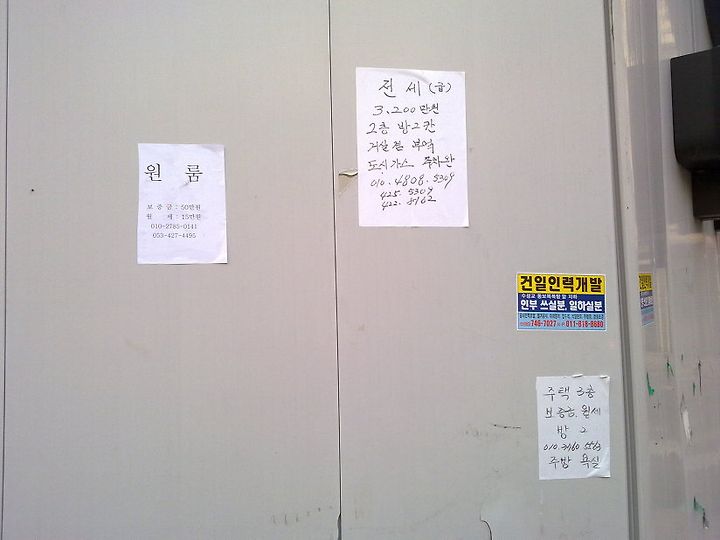 원 룸
보 증 금 : 50만원
월 세 : 15만원
010-2785-0141
053-427-4495
전 세 (급)
3,200 만원
2층 방2칸
거실 겸 부엌
도시가스
010. 4808. 5309
425. 5309
422. 8162
건일인력개발
인부 쓰실분, 일하실분
746-7027 011-818-8680
주택 3층
보증금, 월세
방 2
주방 욕실